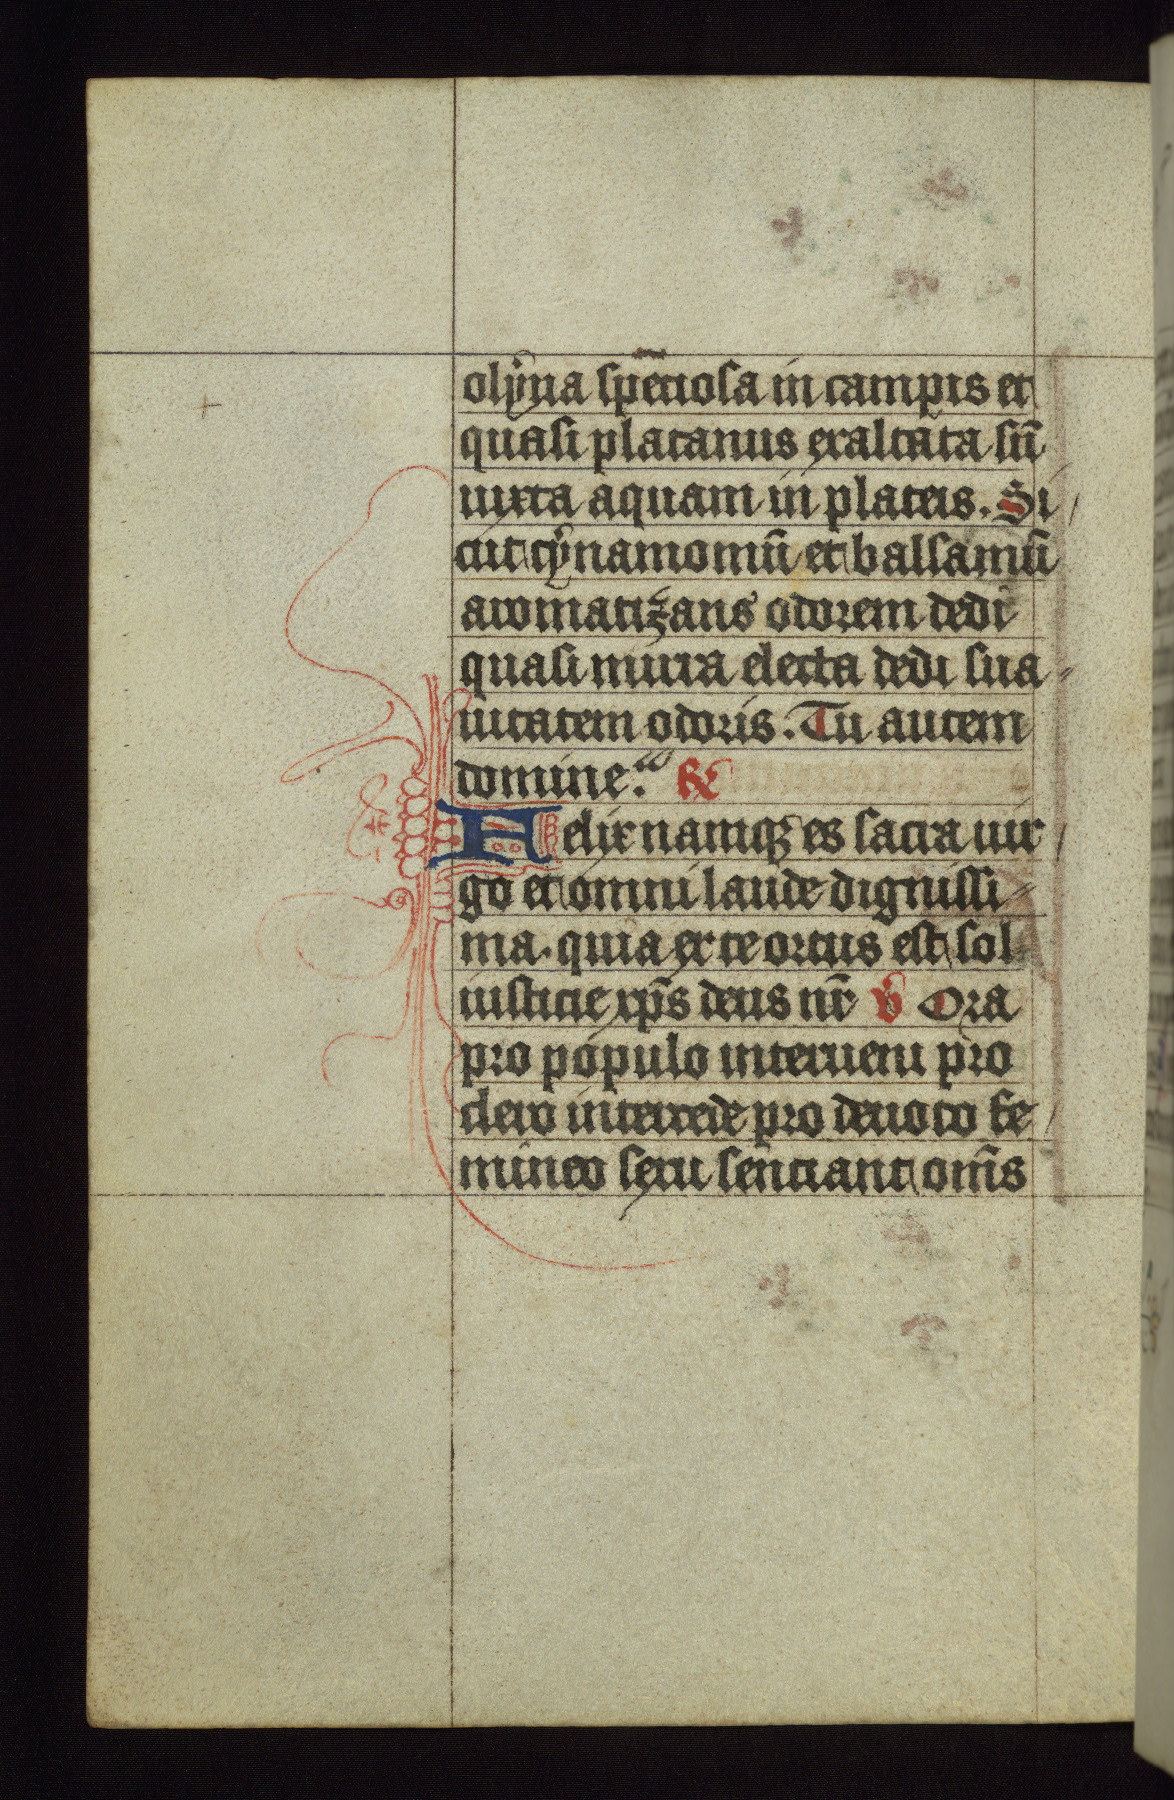 olyua speciosa in campis et
quasi platanus exaltata sū
iuxta aquam in plateis. Si
cut cynamomū et balsamū
aromatizans odorem dedi
quasi mirra electa dedi sua
uitatem odoris. Tu autem
domine. ℞
Felix namqꝫ es sacra uir
go et omni laude dignissi
ma. quia ex te ortus est sol
iusticie xp̄s deus nr̄ ℣ Ora
pro populo interueni pro
clero intercede pro deuoto fe
mineo sexu senciant om̄s